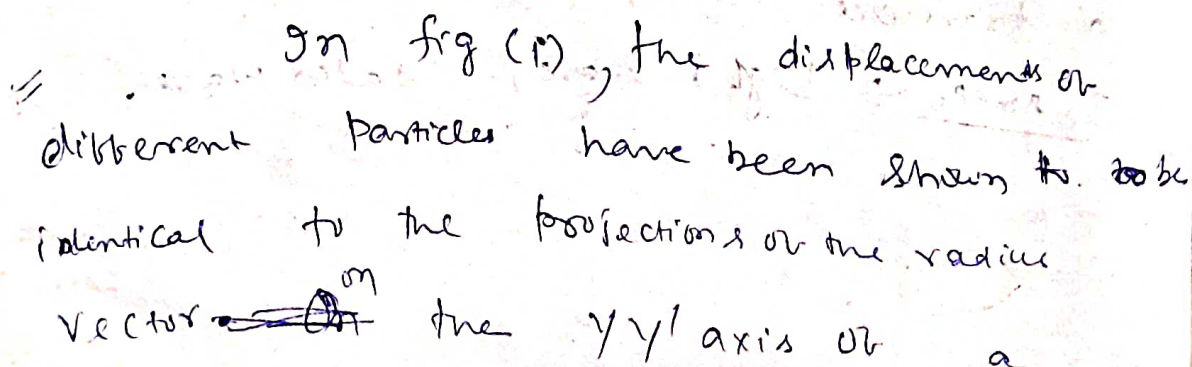 In fig (1), the displacements of
different particles have been shown to be
identical to the projections of the radius
vector on the YY' axis of a